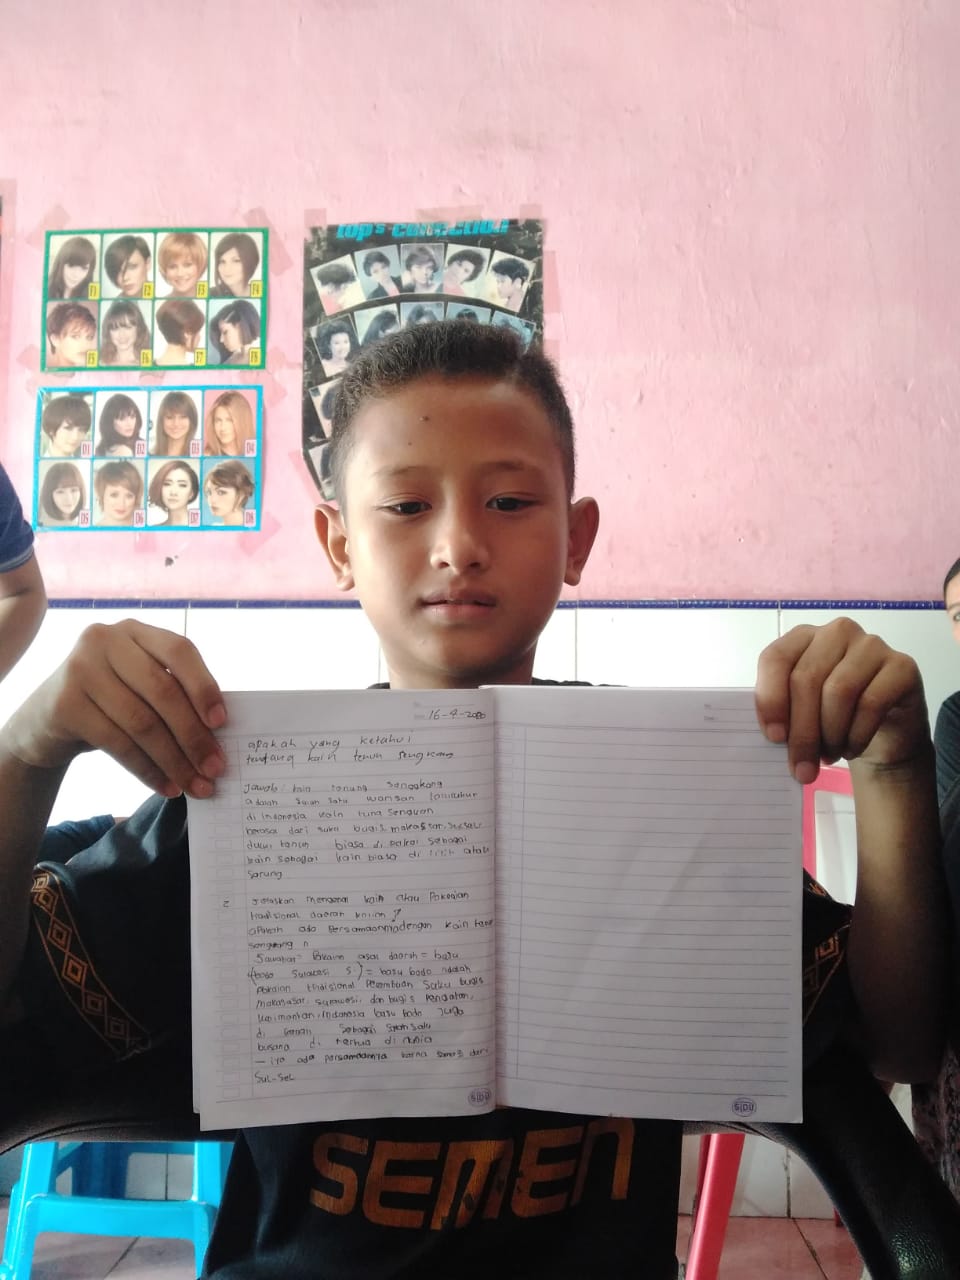 Top's Collection
F1 F2 F3 F4
F5 F6 F7 F8
D1 D2 D3 D4
D5 D6 D7 D8
16-4-2020
apakah yang ketahui
tentang kain tenun sengkang
Jawab: kain
adalah salah satu warisan
di indonesia kain
dari suku bugis, makassar, sulsel.
biasa di pakai sebagai
kain sebagai kain biasa di atau
sarung
2 Jelaskan mengenai kain atau Pakaian
tradisional daerah
apakah ada Persamaannya dengan kain
asal daerah = baju
(bodo Sulawesi S.) = baju bodo adalah
tradisional Perempuan Suku bugis
makassar, sulawesi, dan bugis
Indonesia baju bodo Juga
di Sebagai salah satu
busana di tertua di
- iya ada persamaannya karna dari
Sul-Sel
SIDU
SIDU
SEMEN